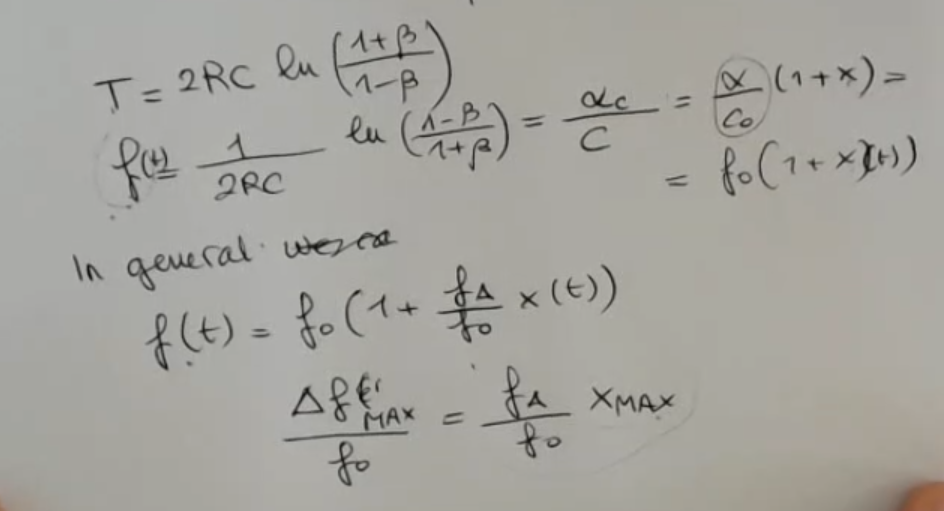 T = 2RC ln ((1+β)/(1-β))
f(t) = 1/(2RC) ln ((1-β)/(1+β)) = αc/C = α/C₀ (1+x) =
= f₀(1+x(t))
In general
f(t) = f₀(1+ fΔ/f₀ x(t))
Δf MAX/f₀ = fΔ/f₀ xMAX